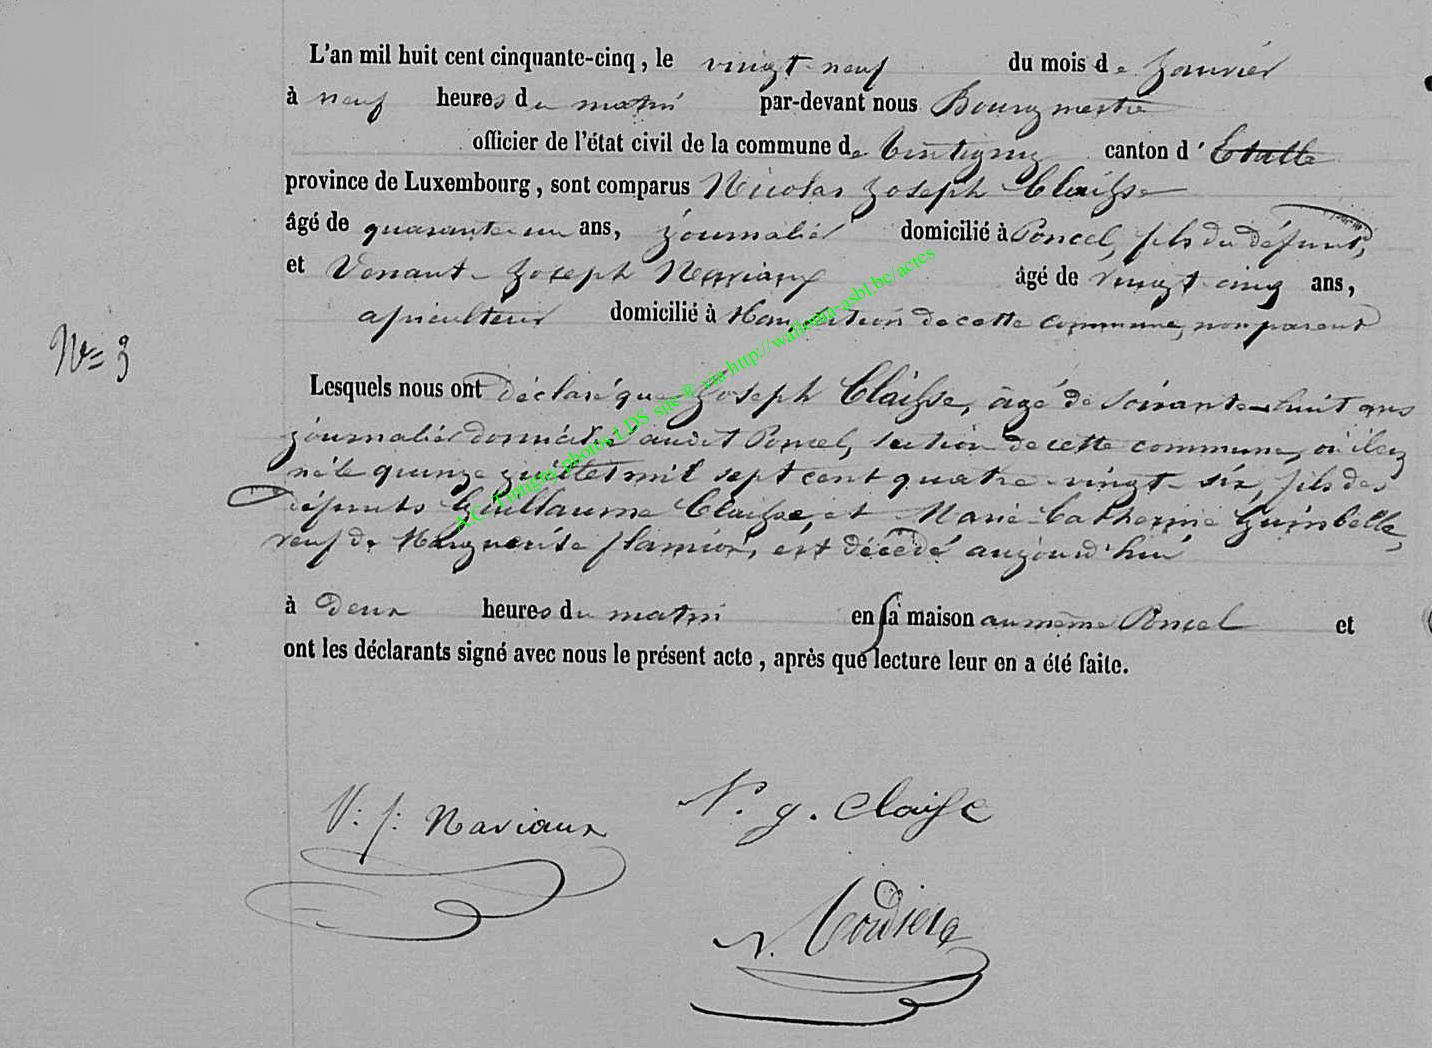 L'an mil huit cent cinquante-cinq, le vingt neuf du mois de Janvier
à neuf heures du matin par-devant nous Bourgmestre
officier de l'état civil de la commune de Tintigny canton d'Etalle
province de Luxembourg, sont comparus Nicolas Joseph Claisse
âgé de quarante un ans, journalier domicilié à Poncel, fils du défunt,
et Venant Joseph Naviaux âgé de vingt cinq ans,
agriculteur domicilié à Han, section de cette commune, non parent
N= 3
Lesquels nous ont déclaré que Joseph Claisse, âgé de soixante-huit ans
journalier domicilié audit Poncel, section de cette commune, où il est
né le quinze juillet mil sept cent quatre-vingt-six, fils des
défunts Guillaume Claisse, et Marie-Catherine Guimbelle,
veuf de Marguerite flamion, est décédé aujourd'hui
à deux heures du matin en sa maison au même Poncel et
ont les déclarants signé avec nous le présent acte, après que lecture leur en a été faite.
A.C. Tintigny photos LDS sur ® via http://wallonia-asbl.be/actes
V: j: Naviaux N. j. Claisse
N. Todière